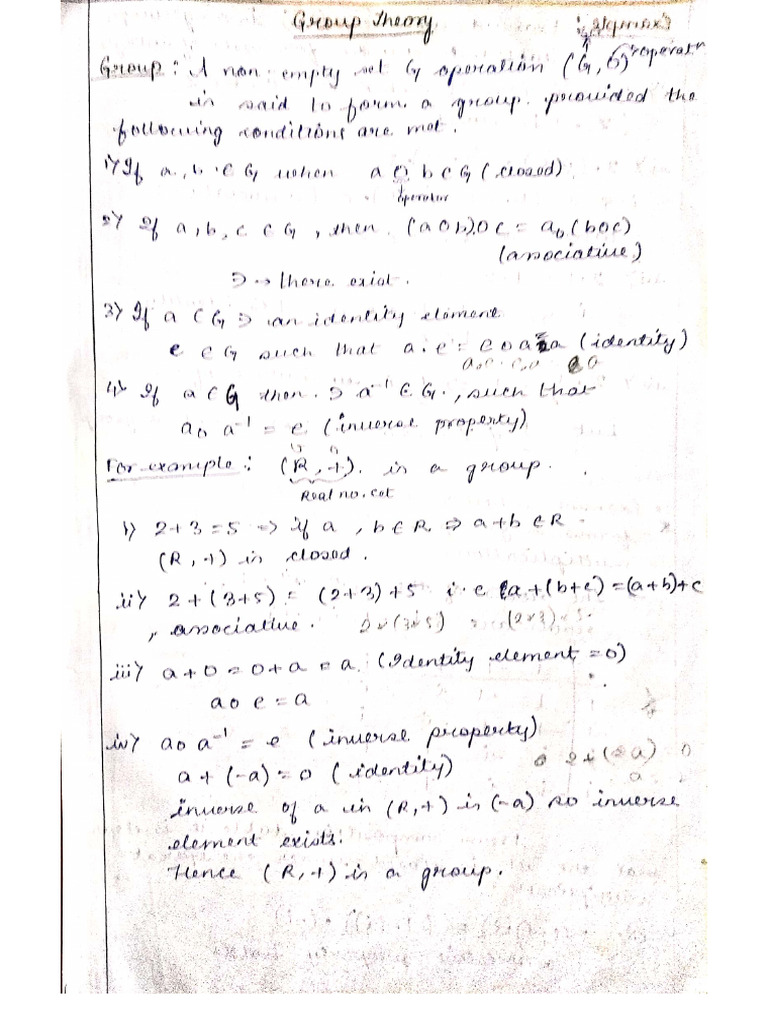 Group Theory
Group: A non empty set G operation (G, o) operator
is said to form a group provided the
following conditions are met.
1) If a, b ∈ G when a o b ∈ G (closed)
operator
2) If a, b, c ∈ G, then (a o b) o c = a o (b o c)
(associative)
∋ → there exist.
3) If a ∈ G ∋ an identity element
e ∈ G such that a . e = e o a = a (identity)
4) If a ∈ G then ∋ a⁻¹ ∈ G, such that
a o a⁻¹ = e (inverse property)
For example: (R, +) is a group.
Real no. set
i) 2+3=5 => if a, b ∈ R ⇒ a+b ∈ R
(R, +) is closed.
ii) 2+(3+5) = (2+3)+5 i.e (a+(b+c)=(a+b)+c
, associative. 2×(3×5) (2×3)×5
iii) a+0=0+a=a (Identity element=0)
a o e = a
iv) a o a⁻¹ = e (inverse property)
a+(-a)=0 (identity)
inverse of a in (R,+) is (-a) so inverse
element exists.
Hence (R, +) is a group.